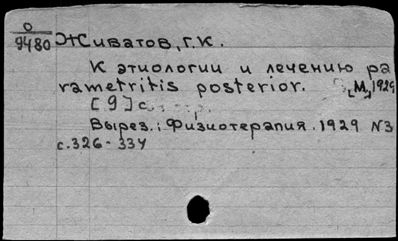 О
9480
Живатов, Г.К.
К этиологии и лечению pa
rametritis posterior. [М.,] 1929
[9] с.
Вырез.: Физиотерапия. 1929 №3
с. 326-334